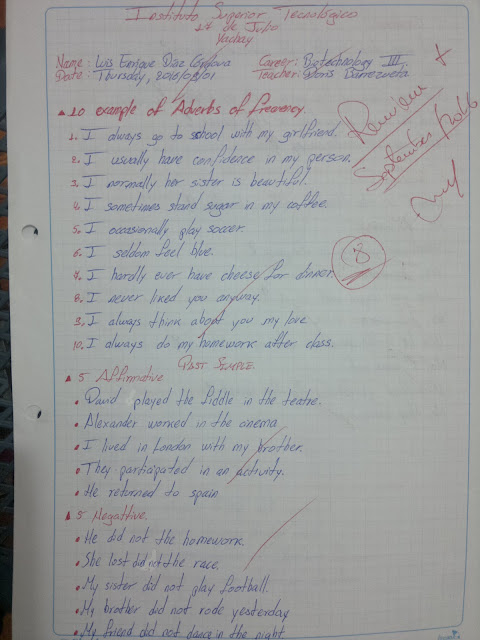 Instituto Superior Tecnológico
17 de Julio
Yachay
Name: Luis Enrique Diaz Cordova Career: Biotechnology III.
Date: Thursday, 2016/09/01 Teacher: Doris Barrezueta
10 example of Adverbs of frecuency.
1. I always go to school with my girlfriend.
2. I usually have confidence in my person.
3. I normally her sister is beautiful.
4. I sometimes stand sugar in my coffee.
5. I occasionally play soccer.
6. I seldom feel blue.
7. I hardly ever have cheese for dinner.
8. I never liked you anyway.
9. I always think about you my love.
10. I always do my homework after class.
Review
September
8
Past Simple.
5 Affirmative
David played the fiddle in the teatre.
Alexander worked in the cinema
I lived in London with my brother.
They participated in an activity.
He returned to spain
5 Negattive.
He did not the homework.
She lost did not the race.
My sister did not play football.
My brother did not rode yesterday
My friend did not dance in the night.